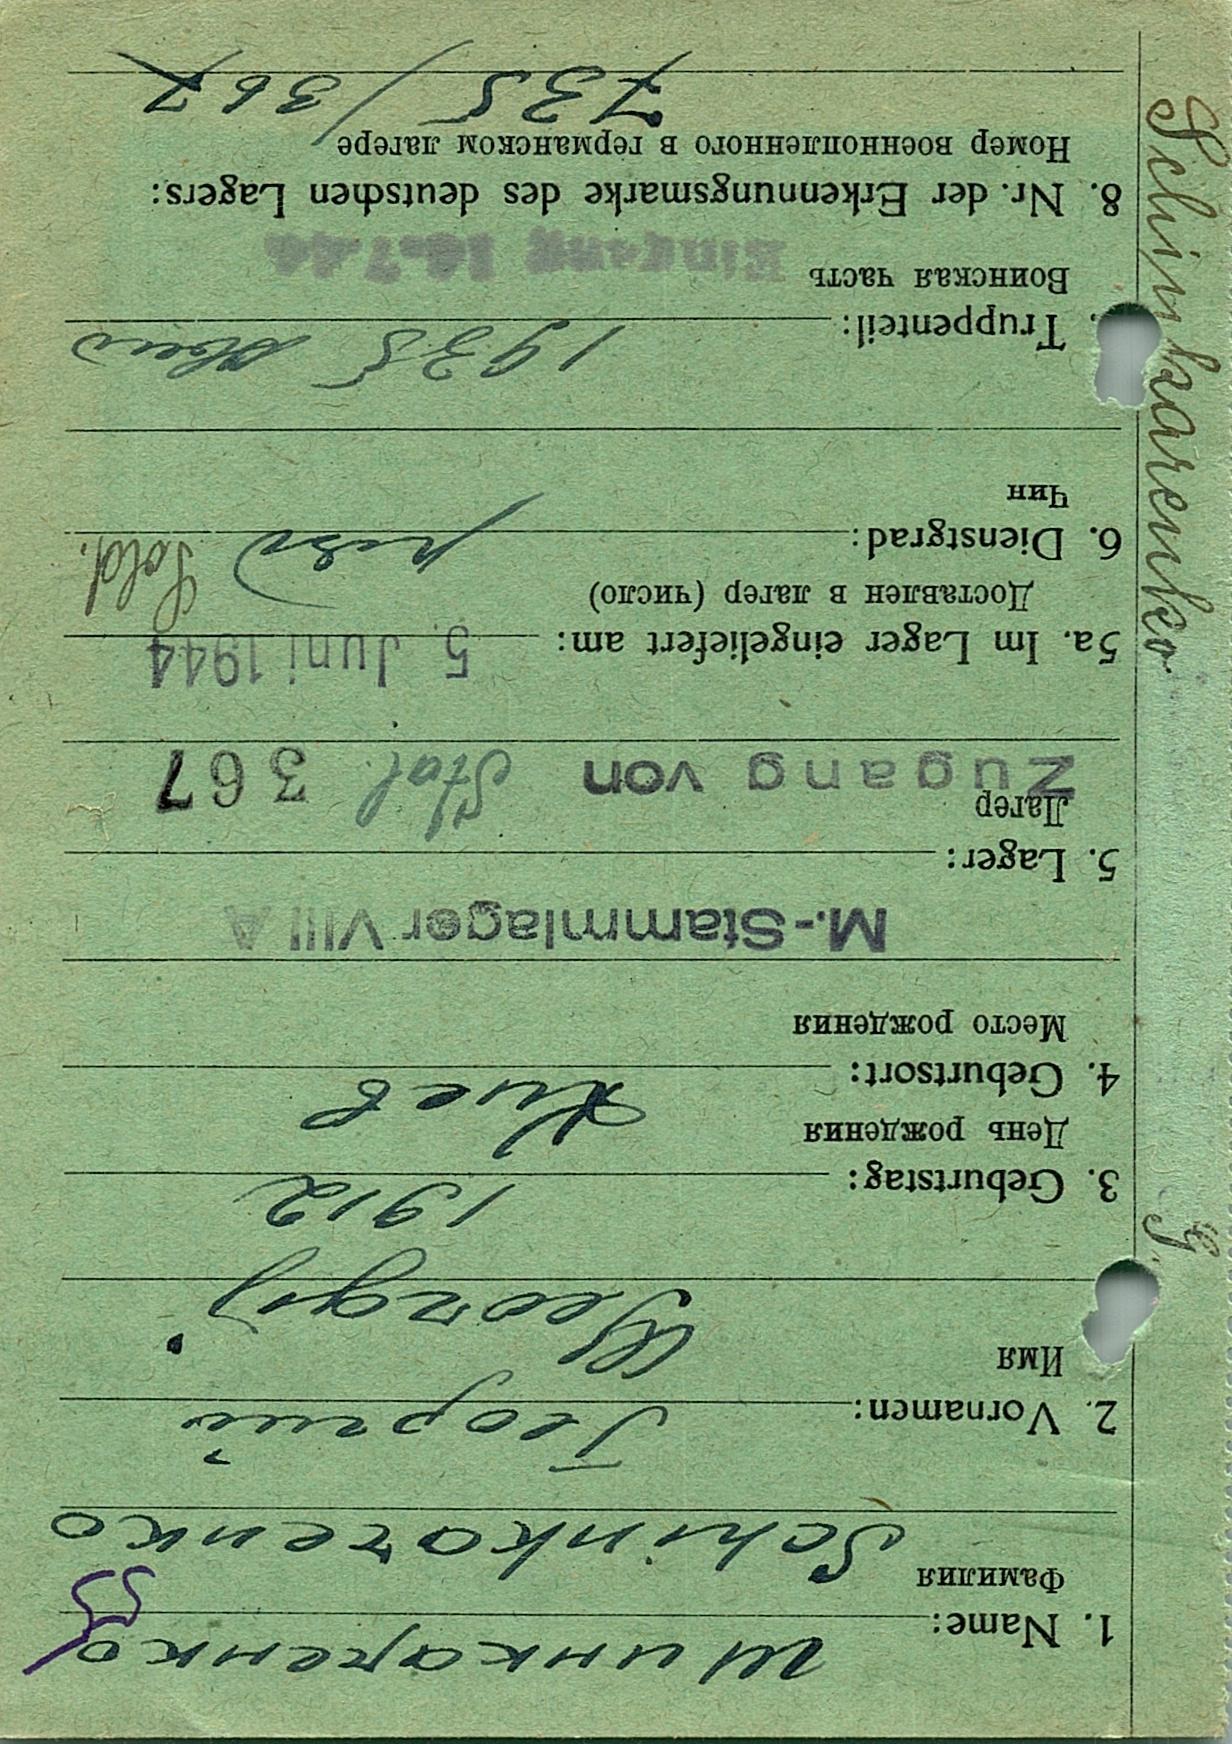 Schinkarenko G.
1. Name: Шинкаренко
Фамилия
Schinkarenko
2. Vornamen: Георгий
Имя
Georgij
3. Geburtstag: 1912
День рождения
4. Geburtsort: Киев
Место рождения
M.-Stammlager VIII A
5. Lager:
Лагерь
Zugang von Stal. 367
5a. Im Lager eingeliefert am: 5. Juni 1944
Доставлен в лагерь (число)
6. Dienstgrad: Sold.
Чин
Truppenteil: 1935
Воинская часть
Eingang 14.7.44
8. Nr. der Erkennungsmarke des deutschen Lagers:
Номер военнопленного в германском лагере
735/367